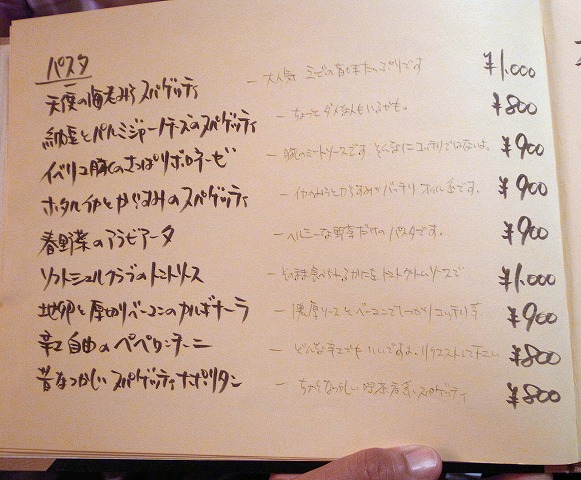 パスタ
天使の海老みそスパゲッティ — 大人気 エビの旨味たっぷりです ¥1,000
納豆とパルミジャーノチーズのスパゲッティ — ちょっとダメな人もいるかも。 ¥800
イベリコ豚のさっぱりボロネーゼ — 豚のミートソースです そんなにコッテリではないよ。 ¥900
ホタルイカとからすみのスパゲッティ — イカのみそとからすみが バッチリ オイル系です。 ¥900
春野菜のアラビアータ — ヘルシーな野菜だけのパスタです。 ¥900
ソフトシェルクラブのトマトソース — 食べられるカニを トマトクリームソースで ¥1,000
地卵と厚切りベーコンのカルボナーラ — 濃厚ソースとベーコンでしっかりコッテリ ¥900
辛さ自由のペペロンチーニ — どんな辛さでもいいですよ。リクエストして下さい ¥800
昔なつかしいスパゲッティナポリタン — ちょっとなつかしい 喫茶店系スパゲッティ ¥800